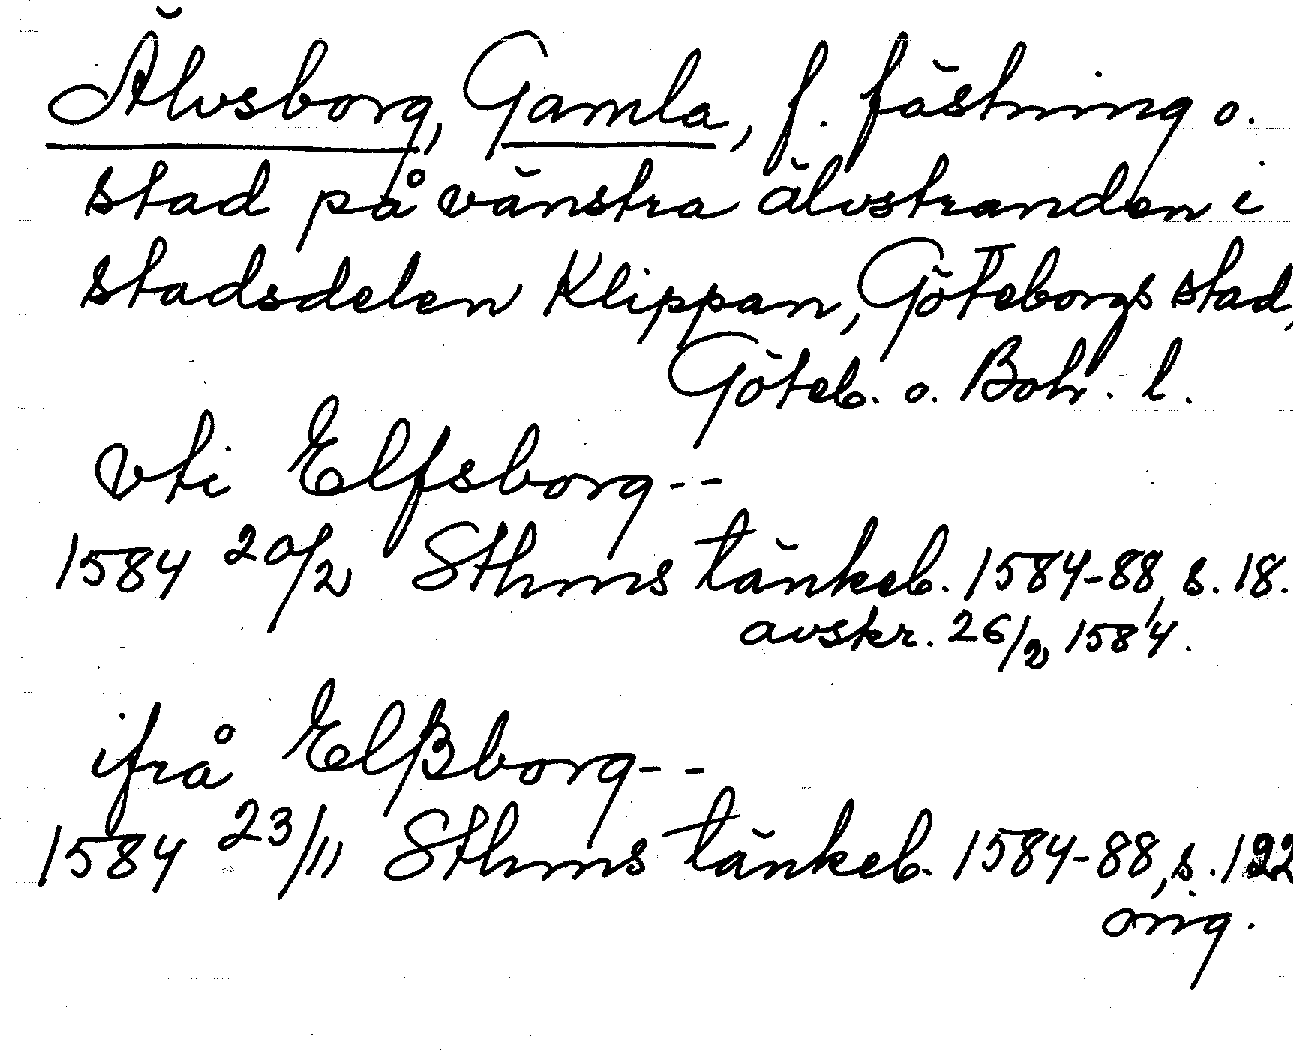 Älvsborg, Gamla, f. fästning o.
stad på vänstra älvstranden i
stadsdelen Klippan, Göteborgs stad,
Göteb. o. Boh. l.
vti Elfsborg--
1584 20/2 Sthms tänkeb. 1584-88, s. 18.
avskr. 26/2 1584.
ifrå Elßborg--
1584 23/11 Sthms tänkeb. 1584-88, s. 122
orig.